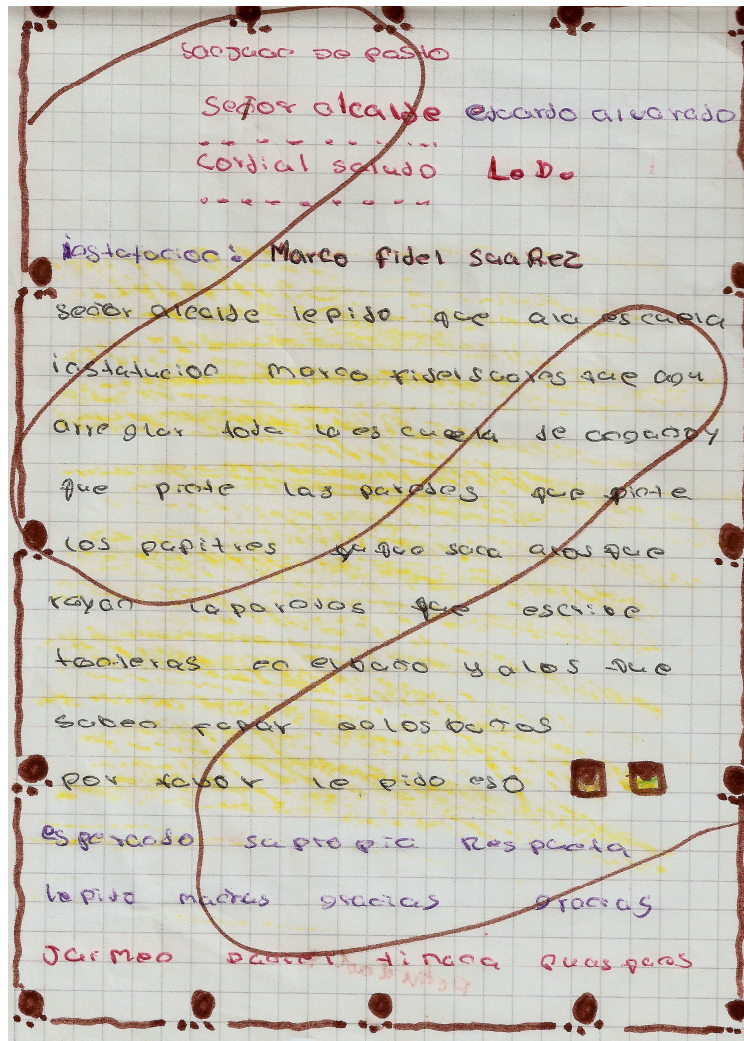 sacjuaco de pasto
señor alcalde edcardo alvarado
cordial saludo L.D.
iostatocioo: Marco fidel suaRez
señor alcalde lepido que ala escuela
iostatucioo marco fidelscares que
arre glar toda la es cuela de
que piote las paredes que piote
los papitres que saca alos que
rayan laparedes que escribe
en elbaño y alos que
saben en los baños
por favor le pido eso
esperaodo su propia Respuesta
le pido muchas gracias gracias